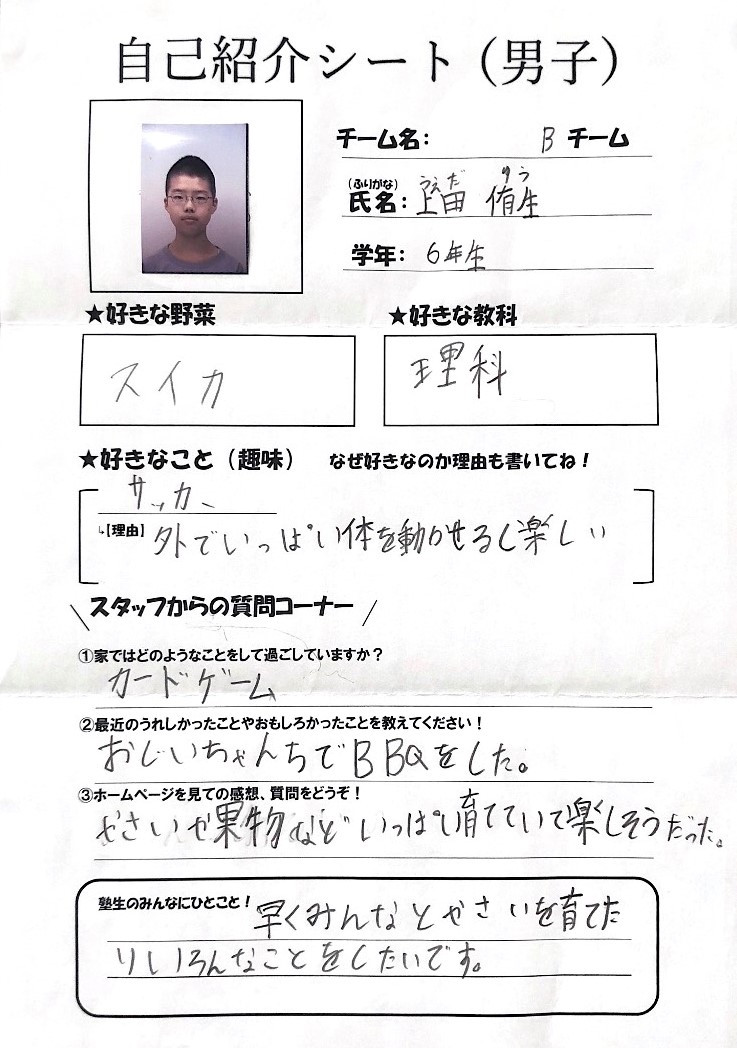 自己紹介シート（男子）
チーム名： B チーム
（ふりがな） うえだ ゆう
氏名： 上田 侑生
学年： 6年生
★好きな野菜 ★好きな教科
スイカ 理科
★好きなこと（趣味） なぜ好きなのか理由も書いてね！
サッカー
↳【理由】 外でいっぱい体を動かせるし楽しい
スタッフからの質問コーナー
①家ではどのようなことをして過ごしていますか？
カードゲーム
②最近のうれしかったことやおもしろかったことを教えてください！
おじいちゃんちでBBQをした。
③ホームページを見ての感想、質問をどうぞ！
やさいや果物などいっぱい育てていて楽しそうだった。
塾生のみんなにひとこと！ 早くみんなとやさいを育てた
りいろんなことをしたいです。